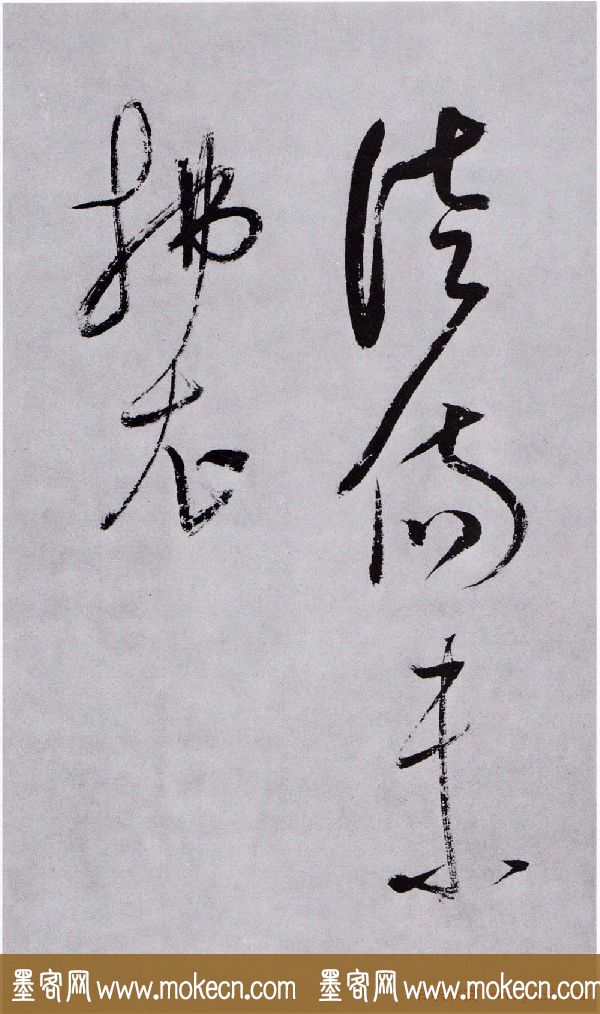 徒傷未
拂衣
墨客网 www.mokecn.com 墨客网 www.mokecn.com